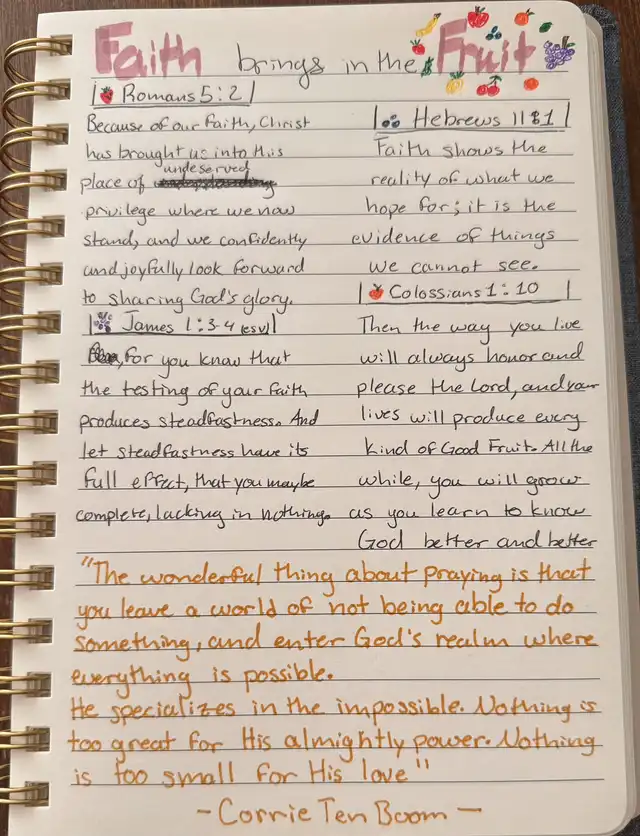 Faith brings in the Fruit
Romans 5:2
Because of our faith, Christ
has brought us into this
undeserved
place of
privilege where we now
stand, and we confidently
and joyfully look forward
to sharing God's glory.
James 1:3-4 (esv)
for you know that
the testing of your faith
produces steadfastness. And
let steadfastness have its
full effect, that you maybe
complete, lacking in nothing.
Hebrews 11:1
Faith shows the
reality of what we
hope for; it is the
evidence of things
we cannot see.
Colossians 1:10
Then the way you live
will always honor and
please the Lord, and your
lives will produce every
kind of Good Fruit. All the
while, you will grow
as you learn to know
God better and better
"The wonderful thing about praying is that
you leave a world of not being able to do
something, and enter God's realm where
everything is possible.
He specializes in the impossible. Nothing is
too great for His almightly power. Nothing
is too small for His love"
- Corrie Ten Boom -